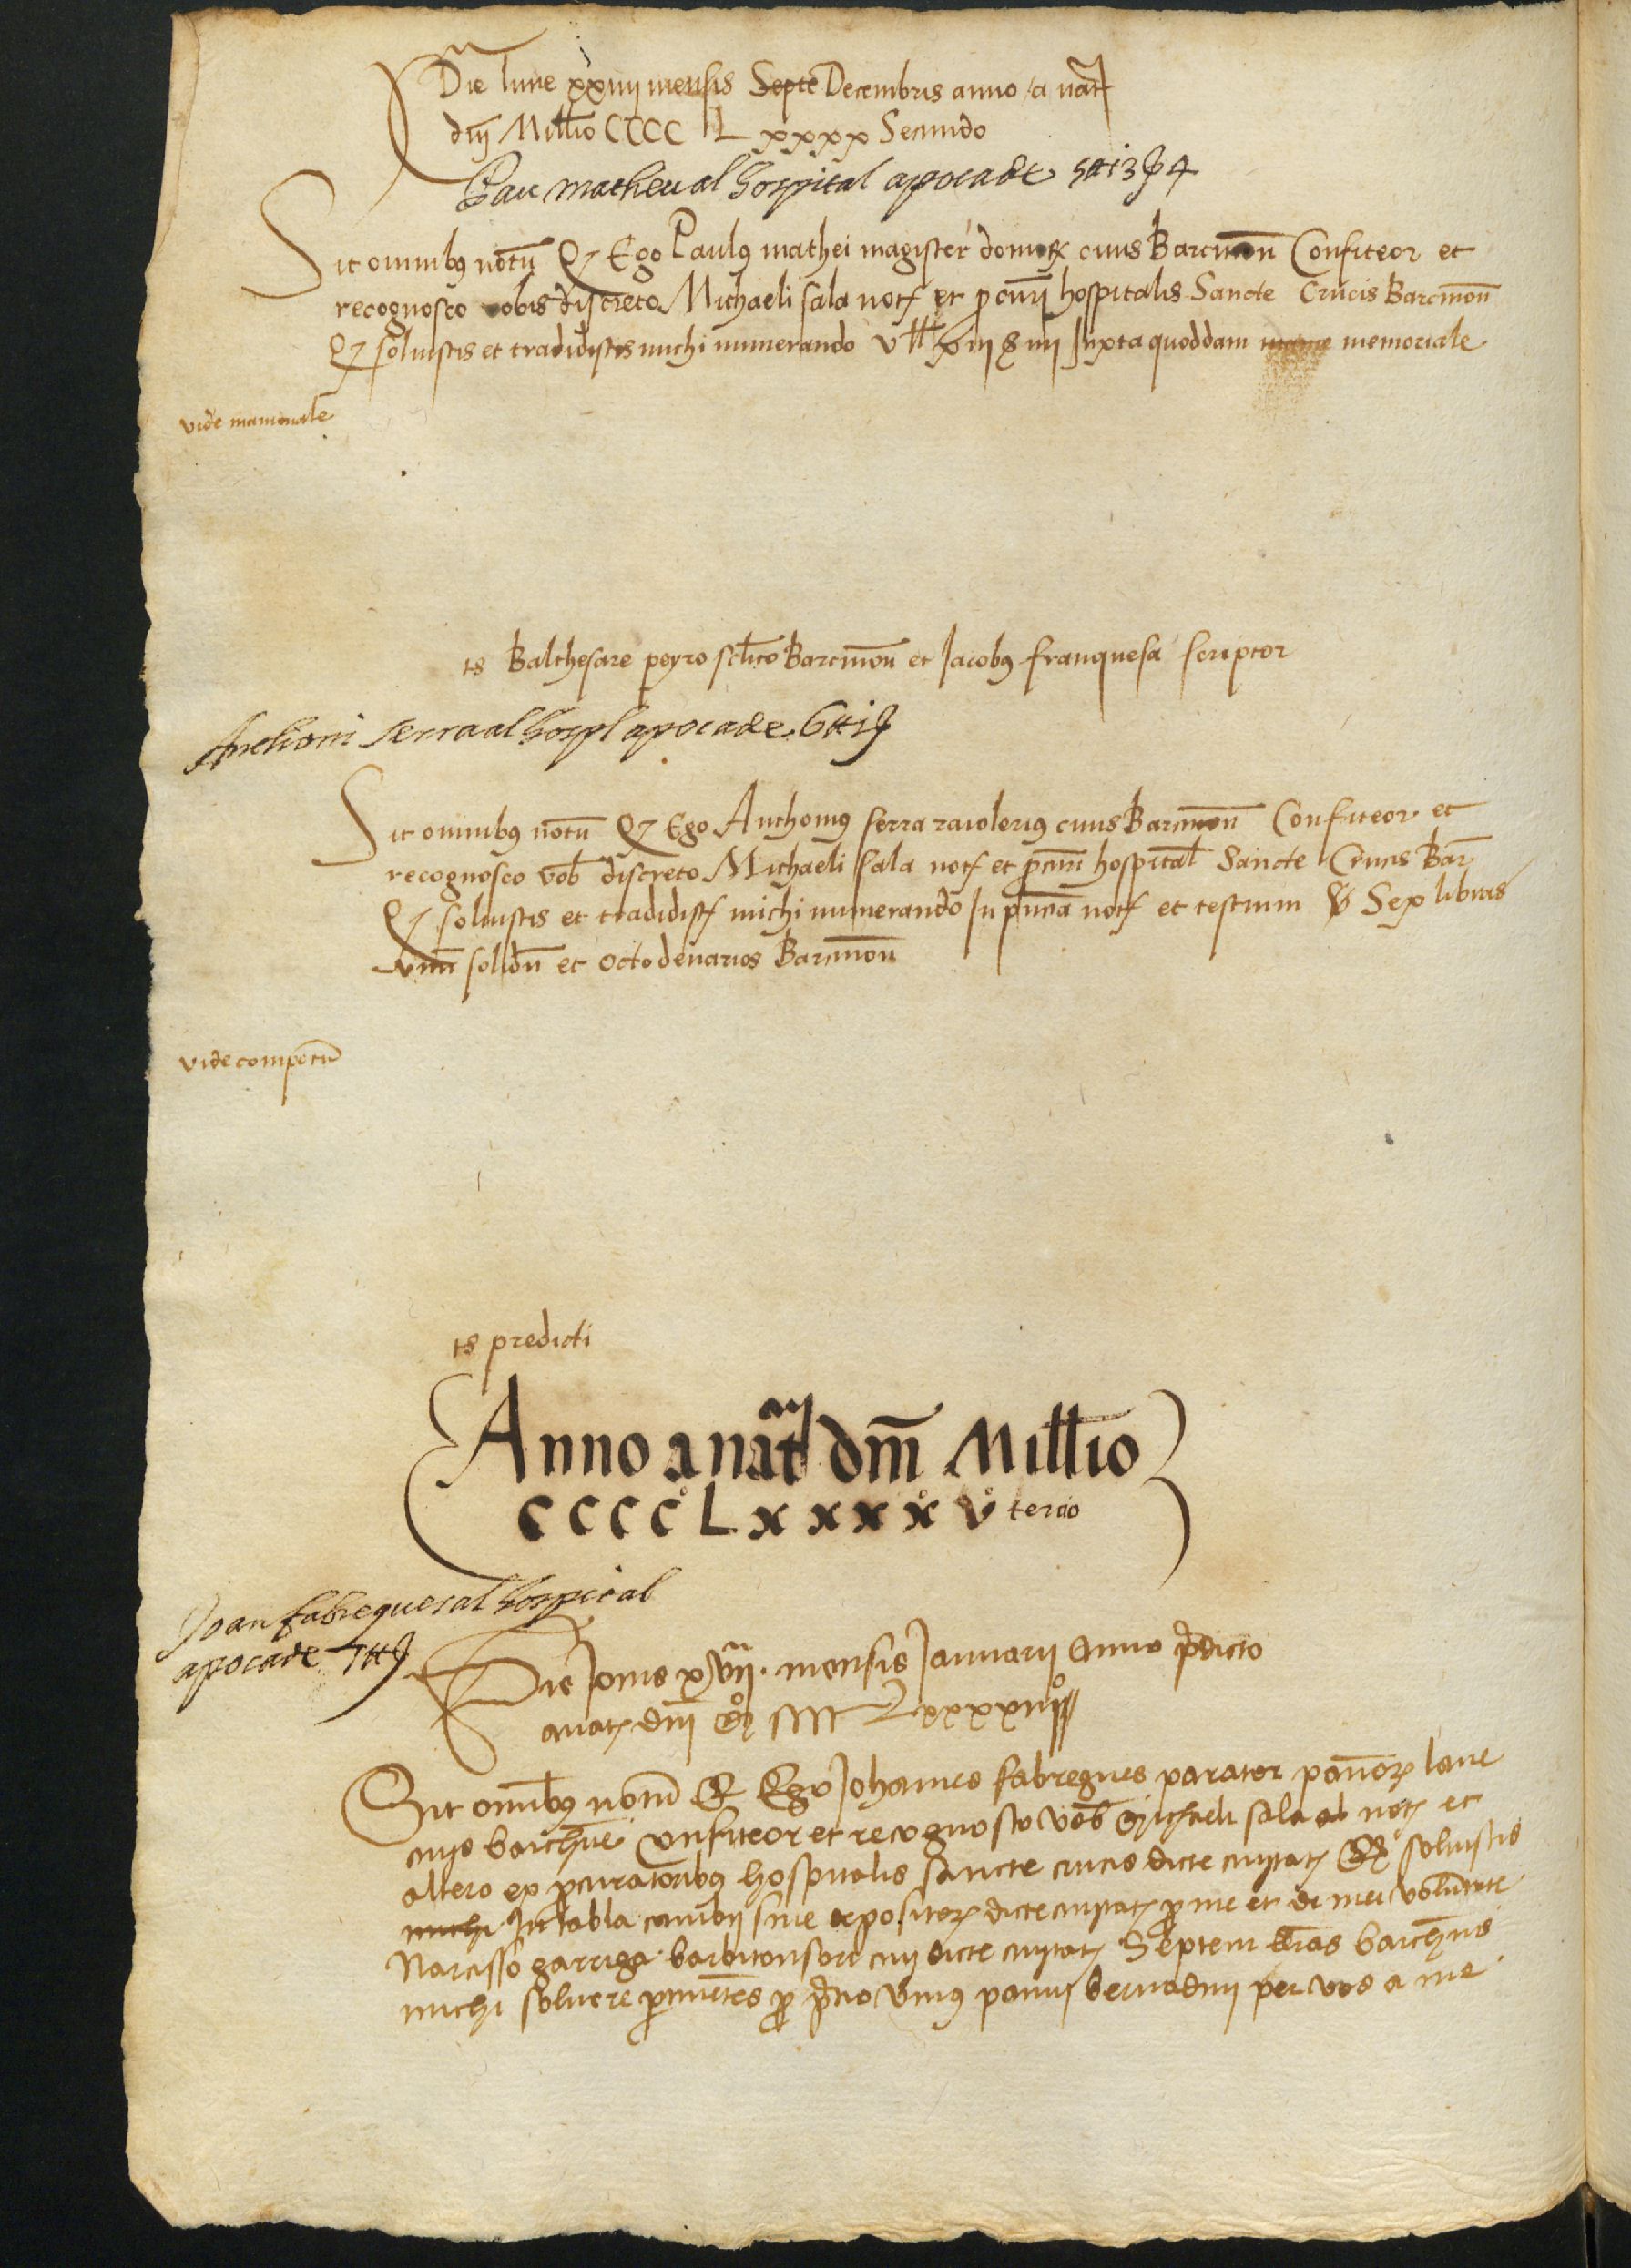 Die lune xxiiii mensis Septe Decembris anno a nat
dnj Millio CCCC L xxxx Secundo
Pau matheu al hospital apoca de 5 ₶ 13 ꝭ 4
Sit omnibus notu Q Ego Paulus mathei magister domor civis Barcinon Confiteor et
recognosco vobis discreto Michaeli sala not et procuri hospitalis Sancte Crucis Barcinon
Q solvistis et tradidistis michi numerando v ₶ xiii s iiii Iuxta quoddam memoriale
vide manuale
ts Balthesare peyro Barcinon et Jacobus franquesa scriptor
Anthoni serra al hospl apoca de 6 ₶ 1 ꝭ
Sit omnibus notu Q Ego Anthonius serra raiolerius civis Barcinon Confiteor et
recognosco vob discreto Michaeli sala not et procuri hospital Sancte Crucis Bar
Q solvistis et tradidist michi numerando In pncia not et testium Sex libras
unu solidu et octo denarios Barcinon
vide compotu
ts predicti
Anno a nat dni Millio
CCCC L xxxx v tercio
Joan fabregues al hospital
apoca de 7 ₶
Die Jovis xvii mensis Januarii anno predicto
a nat dni Mo CCCC Lxxxxiii
Sit omnibus notu Q Ego Johannes fabregues parator panor lane
civis barchne Confiteor et recognosco vob Michaeli sala not et
altero ex procuratoribus hospitalis sancte crucis dicte civitat Q solvistis
michi In tabla cambii sive depositor dicte civitat pro me et de mei voluntate
Narcisso garriga barbitonsori civi dicte civitat Septem libras barchnes
michi solvere pro precio unius panni bernadini per vos a me